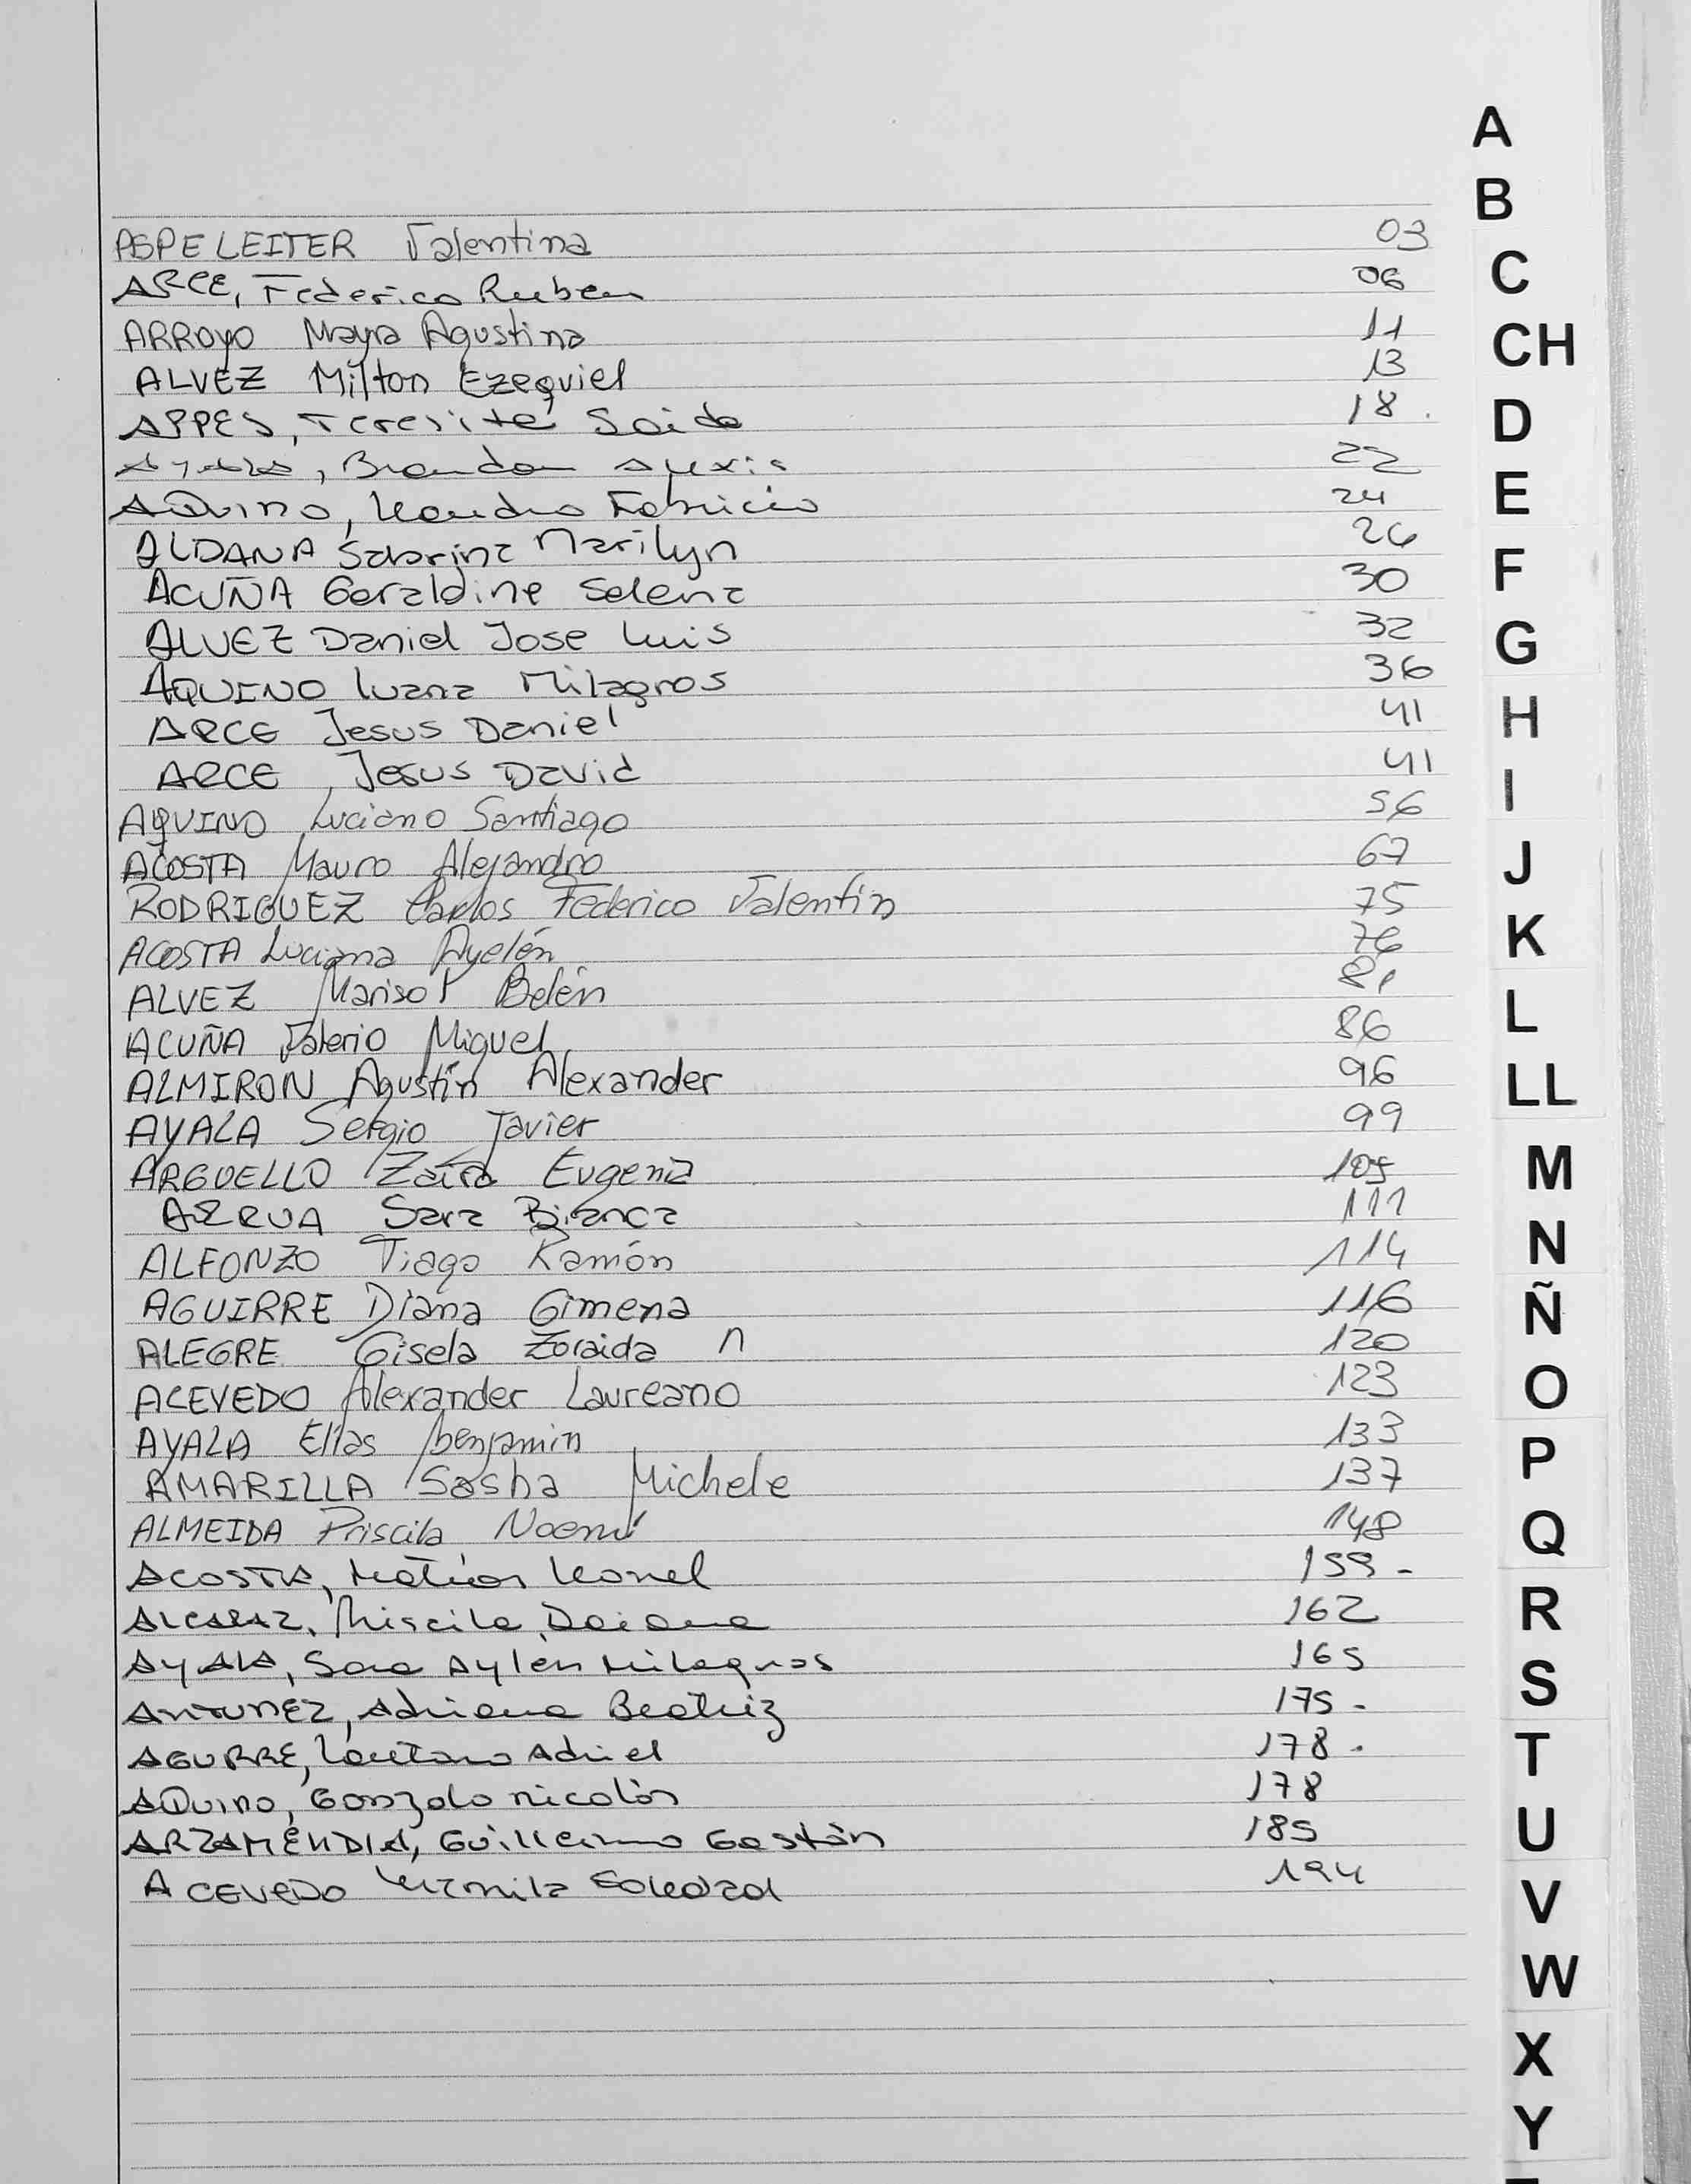 A
B
ASPELEITER Valentina 03
C
ARCE, Federico Ruben 06
ARROYO Mayra Agustina 11
CH
ALVEZ Milton Ezequiel 13
APPES, Teresita Saida 18.
D
AYALA, Brandon Alexis 22
AQUINO, Leandro Fabricio 24
E
ALDANA Sabrina Marilyn 26
F
ACUÑA Geraldine Selena 30
ALVEZ Daniel Jose Luis 32
G
AQUINO Luana Milagros 36
ARCE Jesus Daniel 41
H
ARCE, Jesus David 41
I
AQUINO Luciano Santiago 56
ACOSTA Mauro Alejandro 67
J
RODRIGUEZ Carlos Federico Valentin 75
ACOSTA Luciana Ayelén 76
K
ALVEZ Marisol Belén 81
L
ACUÑA Valerio Miguel 86
ALMIRON Agustín Alexander 96
LL
AYALA Sergio Javier 99
ARGUELLO Zaira Eugenia 105
M
AZRUA Sara Bianca 111
N
ALFONZO Tiago Ramón 114
AGUIRRE Diana Gimena 116
Ñ
ALEGRE Gisela Zoraida N 120
ACEVEDO Alexander Laureano 123
O
AYALA Elías benjamin 133
P
AMARILLA Sasha Michele 137
ALMEIDA Priscila Noemí 148
Q
ACOSTA, Matías Leonel 159-
ALCARAZ, Priscila Daiana 162
R
AYALA, Sara Aylen Milagros 165
S
ANTUNEZ, Adriana Beatriz 175-
AGURRE, Lautaro Adriel 178.
T
AQUINO, Gonzalo Nicolás 178
ARZAMENDIA, Guillermo Gastón 185
U
ACEVEDO Yermila Soledad 194
V
W
X
Y